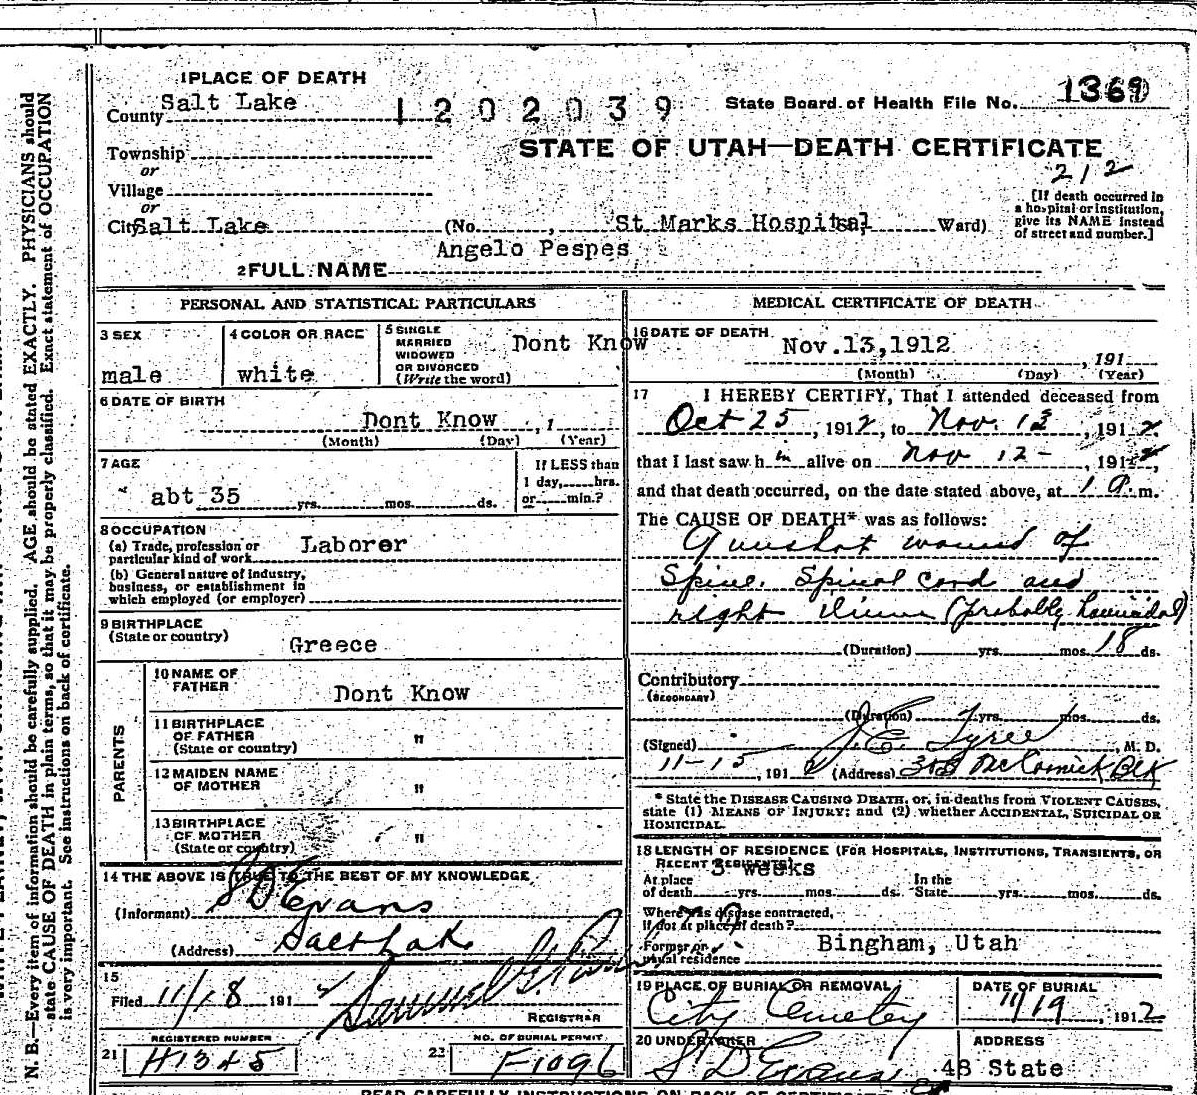 1 PLACE OF DEATH
County Salt Lake 1202039 State Board of Health File No. 1369
Township
STATE OF UTAH—DEATH CERTIFICATE
or
212
Village
or
City Salt Lake (No. , St. Marks Hospital Ward)
[If death occurred in
a hospital or institution,
give its NAME instead
of street and number.]
Angelo Pespes
2 FULL NAME
PERSONAL AND STATISTICAL PARTICULARS
3 SEX
male
4 COLOR OR RACE
white
5 SINGLE
MARRIED
WIDOWED
OR DIVORCED
(Write the word)
Dont Know
6 DATE OF BIRTH
Dont Know , 1
(Month) (Day) (Year)
7 AGE
abt 35 yrs. mos. ds.
If LESS than
1 day, hrs.
or min.?
8 OCCUPATION
(a) Trade, profession or
particular kind of work Laborer
(b) General nature of industry,
business, or establishment in
which employed (or employer)
9 BIRTHPLACE
(State or country)
Greece
PARENTS
10 NAME OF
FATHER
Dont Know
11 BIRTHPLACE
OF FATHER
(State or country) "
12 MAIDEN NAME
OF MOTHER "
13 BIRTHPLACE
OF MOTHER
(State or country) "
14 THE ABOVE IS TRUE TO THE BEST OF MY KNOWLEDGE
(Informant) S D Evans
(Address) Salt Lake
15
Filed 11/18 191 Samuel G.
REGISTRAR
REGISTERED NUMBER
21 H1345
NO. OF BURIAL PERMIT
22 F1096
MEDICAL CERTIFICATE OF DEATH
16 DATE OF DEATH
Nov.13,1912 , 191
(Month) (Day) (Year)
17 I HEREBY CERTIFY, That I attended deceased from
Oct 25, 1912, to Nov. 13, 1912
that I last saw him alive on Nov 12-, 1912,
and that death occurred, on the date stated above, at 1 a.m.
The CAUSE OF DEATH* was as follows:
Gunshot wound of
Spine. Spinal cord and
right (probably homicidal)
(Duration) yrs. mos. 18 ds.
Contributory
(SECONDARY)
(Duration) yrs. mos. ds.
(Signed) J. E. Tyree, M. D.
11-15, 191 (Address) McCornick Blk
* State the DISEASE CAUSING DEATH, or, in deaths from VIOLENT CAUSES,
state (1) MEANS OF INJURY; and (2) whether ACCIDENTAL, SUICIDAL OR
HOMICIDAL.
18 LENGTH OF RESIDENCE (FOR HOSPITALS, INSTITUTIONS, TRANSIENTS, OR
RECENT RESIDENTS).
3 weeks
At place
of death yrs. mos. ds. In the
State yrs. mos. ds.
Where was disease contracted,
If not at place of death?
Former or
usual residence Bingham, Utah
19 PLACE OF BURIAL OR REMOVAL
City Cemetery
DATE OF BURIAL
11/19, 1912
20 UNDERTAKER
S D Evans
ADDRESS
48 State
N. B.—Every item of information should be carefully supplied. AGE should be stated EXACTLY. PHYSICIANS should
state CAUSE OF DEATH in plain terms, so that it may be properly classified. Exact statement of OCCUPATION
is very important. See instructions on back of certificate.
READ CAREFULLY INSTRUCTIONS ON BACK OF CERTIFICATE